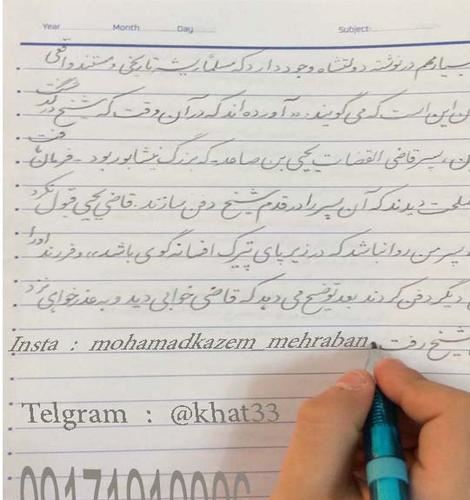 Year Month Day Subject:
بسیار مهم در نوشته دولتشاه وجود دارد که مسلماً ریشه تاریخی و مستند واقعی
این است که می گویند: « آورده اند که در آن وقت که شیخ درگذشت
پسر قاضی القضات یحیی بن صاعد - که بزرگ نیشابور بود - فرمان یافت
دیدند که آن پسر را در قدم شیخ دفن سازند. قاضی یحیی قبول نکرد
پسر من روا نباشد که در زیر پای پیرک افسانه گوی باشد» و فرزند او را
دیگر دفن کردند بعد توضیح می دهد که قاضی خوابی دید و به عذرخواهی نزد
شیخ رفت.
Insta : mohamadkazem_mehraban
Telgram : @khat33